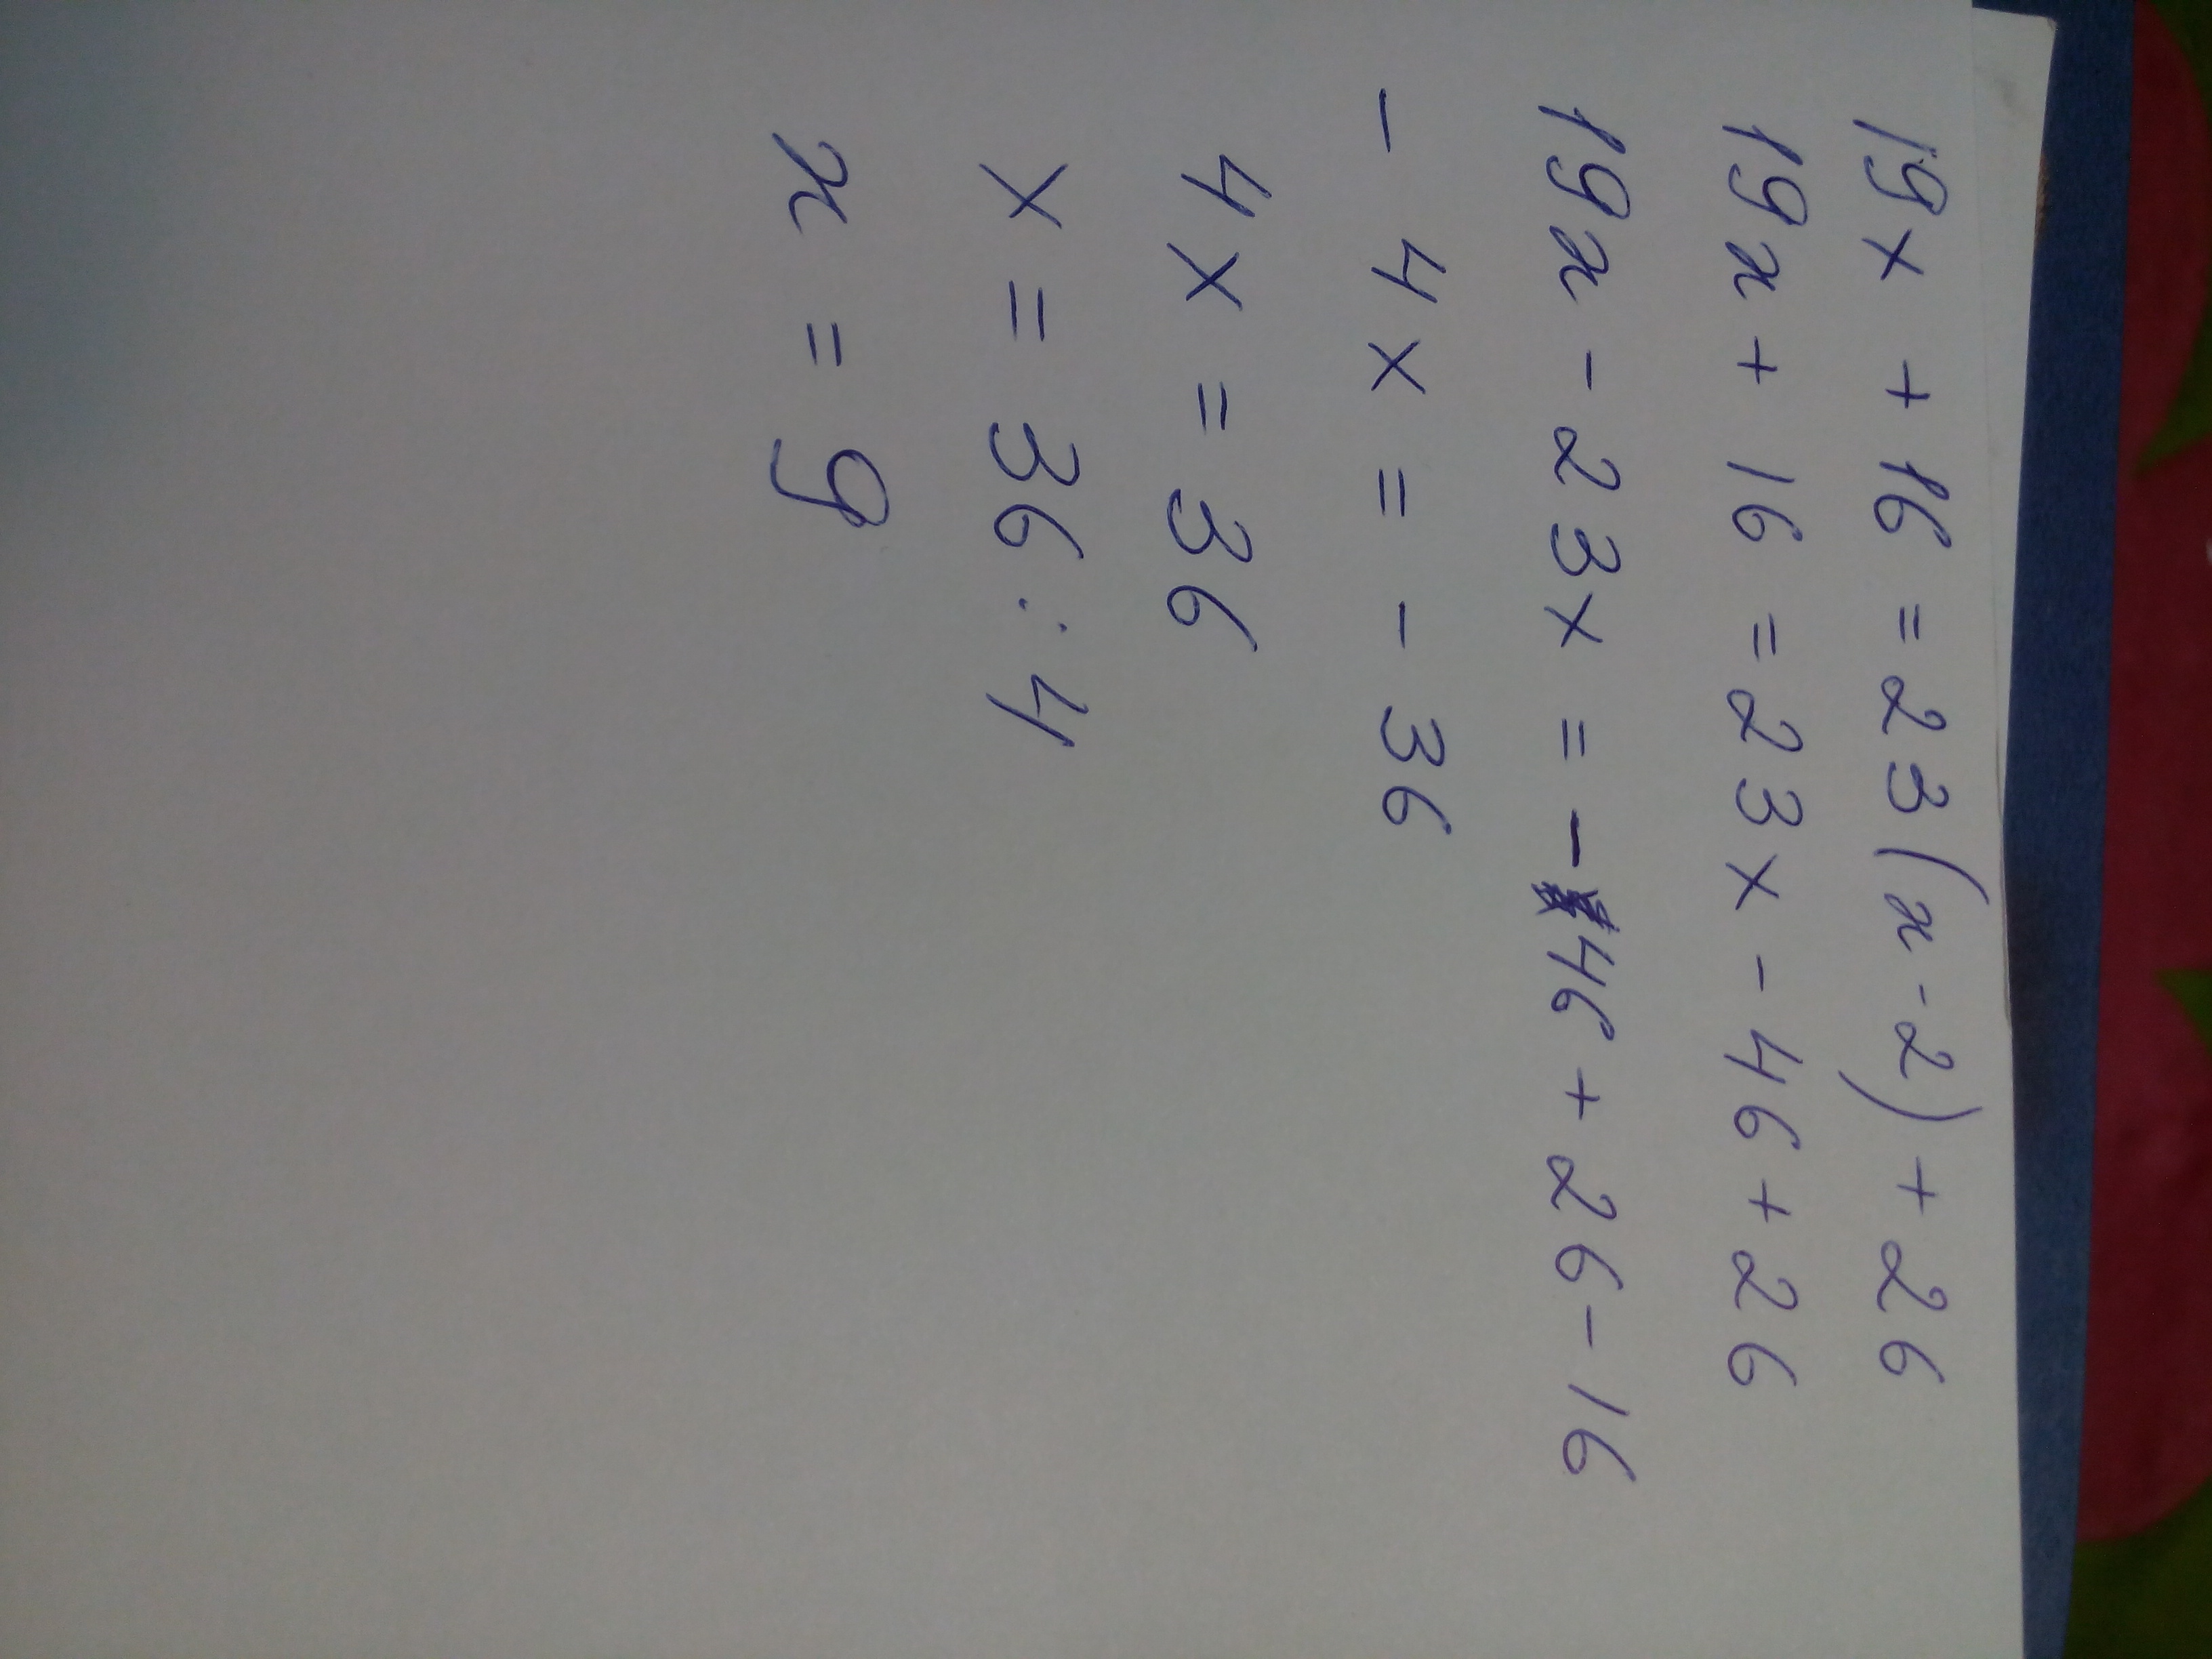 19x + 16 = 23(x - 2) + 26
19x + 16 = 23x - 46 + 26
19x - 23x = - 46 + 26 - 16
- 4x = - 36
4x = 36
x = 36 : 4
x = 9